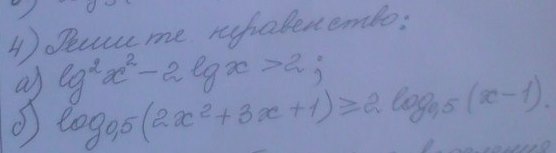 4) Решите неравенство:
а) lg²x² - 2 lg x > 2;
б) log₀,₅(2x² + 3x + 1) ≥ 2 log₀,₅(x - 1).